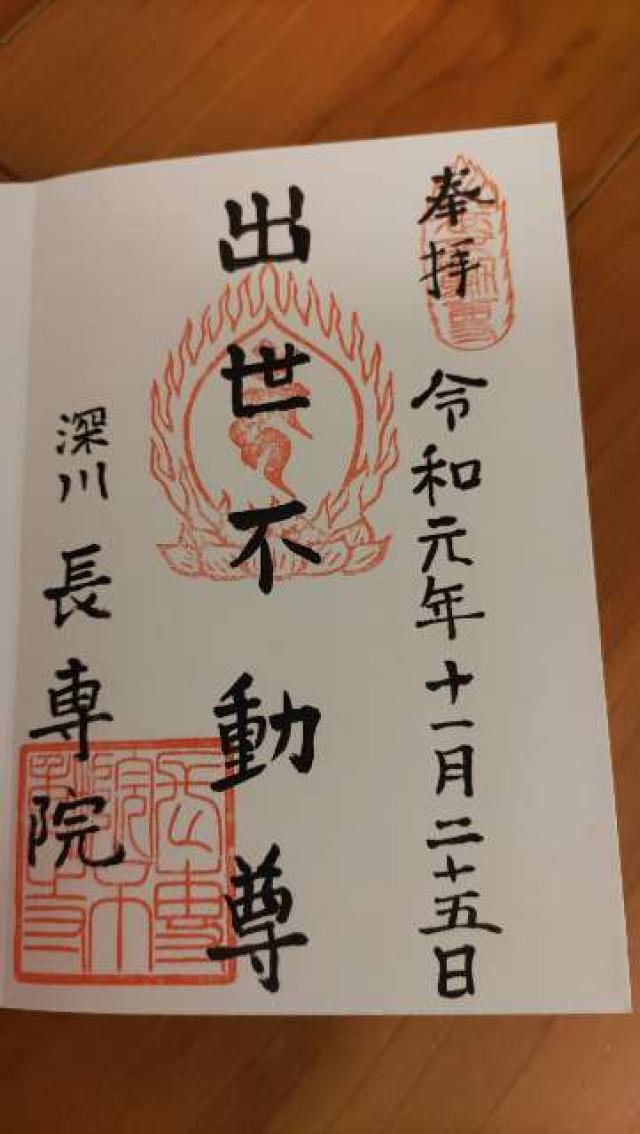 奉拝
令和元年十一月二十五日
出世不動尊
深川 長専院